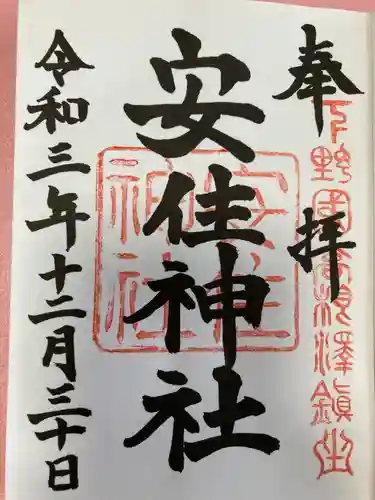 奉拝
下野国高根澤鎮座
安住神社
安住神社
令和三年十二月三十日